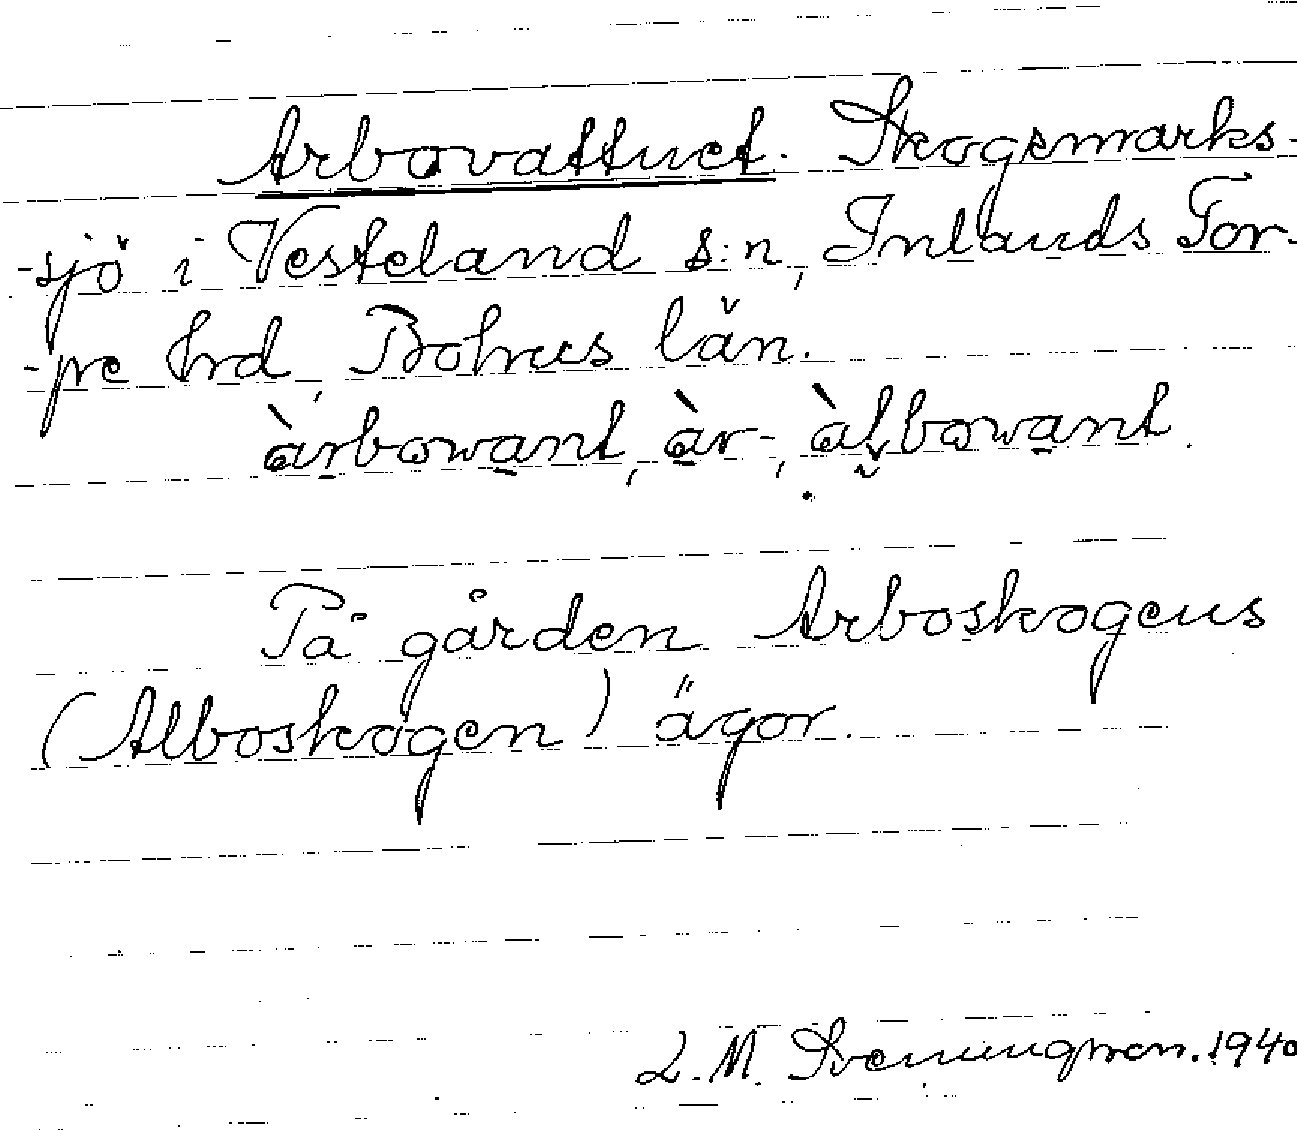 Arbovattnet. Skogsmarks-
-sjö i Vesteland s:n, Inlands Tor-
-pe hrd, Bohus län.
àrbowant, àr-, àlbowant.
På gården Arboskogens
(Alboskogen) ägor.
L. M. Svenungsson. 1940